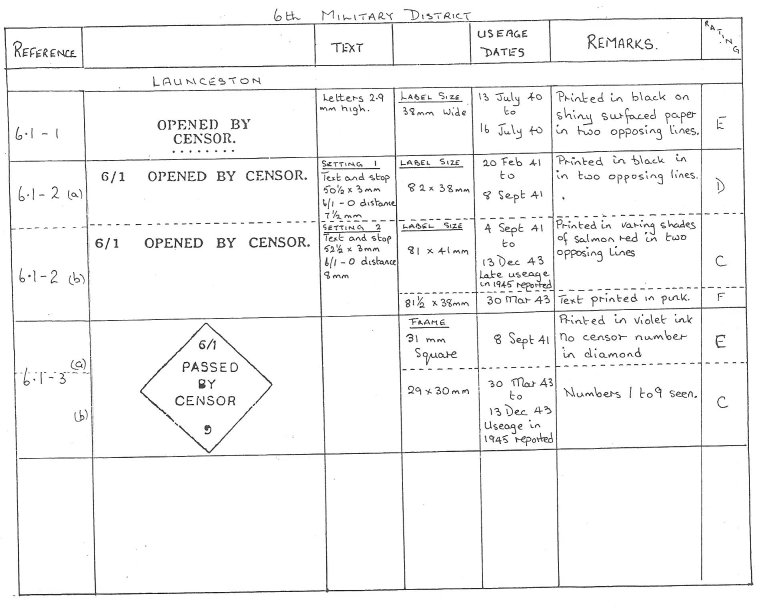 6th MILITARY DISTRICT
REFERENCE
TEXT
USEAGE
DATES
REMARKS.
RATING
LAUNCESTON
6.1-1
OPENED BY
CENSOR.
Letters 2.9
mm high.
LABEL SIZE
38mm Wide
13 July 40
to
16 July 40
Printed in black on
shiny surfaced paper
in two opposing lines.
E
6.1-2 (a)
6/1 OPENED BY CENSOR.
SETTING 1
Text and stop
50½ x 3mm
6/1 - O distance
7½ mm
LABEL SIZE
82 x 38mm
20 Feb 41
to
8 Sept 41
Printed in black in
in two opposing lines.
.
D
6.1-2 (b)
6/1 OPENED BY CENSOR.
SETTING 2
Text and stop
52½ x 3mm
6/1 - O distance
8mm
LABEL SIZE
81 x 41mm
4 Sept 41
to
13 Dec 43
Late useage
in 1945 reported
Printed in varing shades
of salmon red in two
opposing lines
C
81½ x 38mm
30 Mar 43
Text printed in pink.
F
6.1-3
(a)
(b)
6/1
PASSED
BY
CENSOR
9
FRAME
31 mm
Square
8 Sept 41
Printed in violet ink
No censor number
in diamond
E
29 x 30mm
30 Mar 43
to
13 Dec 43
Useage in
1945 reported
Numbers 1 to 9 seen.
C